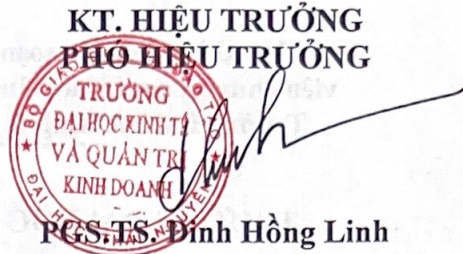 KT. HIỆU TRƯỞNG
PHÓ HIỆU TRƯỞNG
TRƯỜNG
ĐẠI HỌC KINH TẾ
VÀ QUẢN TRỊ
KINH DOANH
PGS.TS. Đinh Hồng Linh